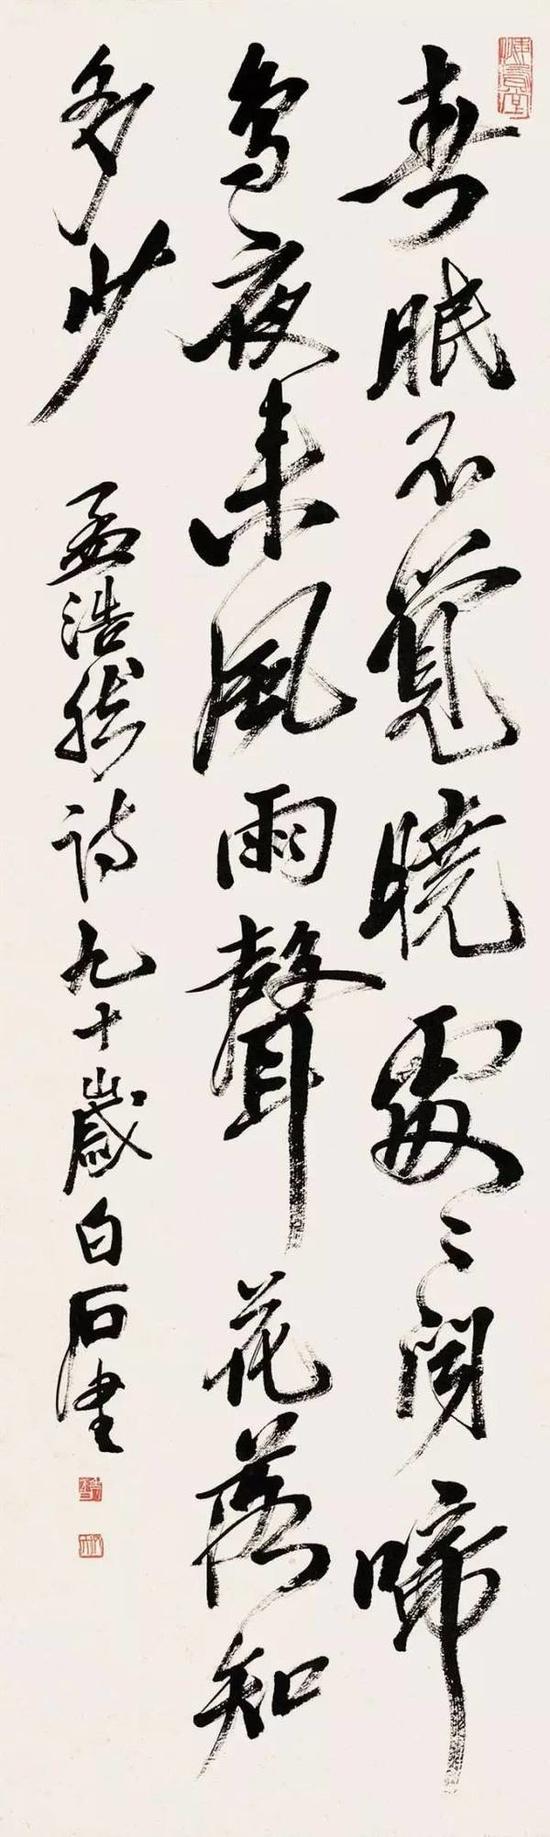 春眠不覺曉處〻聞啼
鳥夜来風雨聲花落知
多少
孟浩然詩九十歲白石書